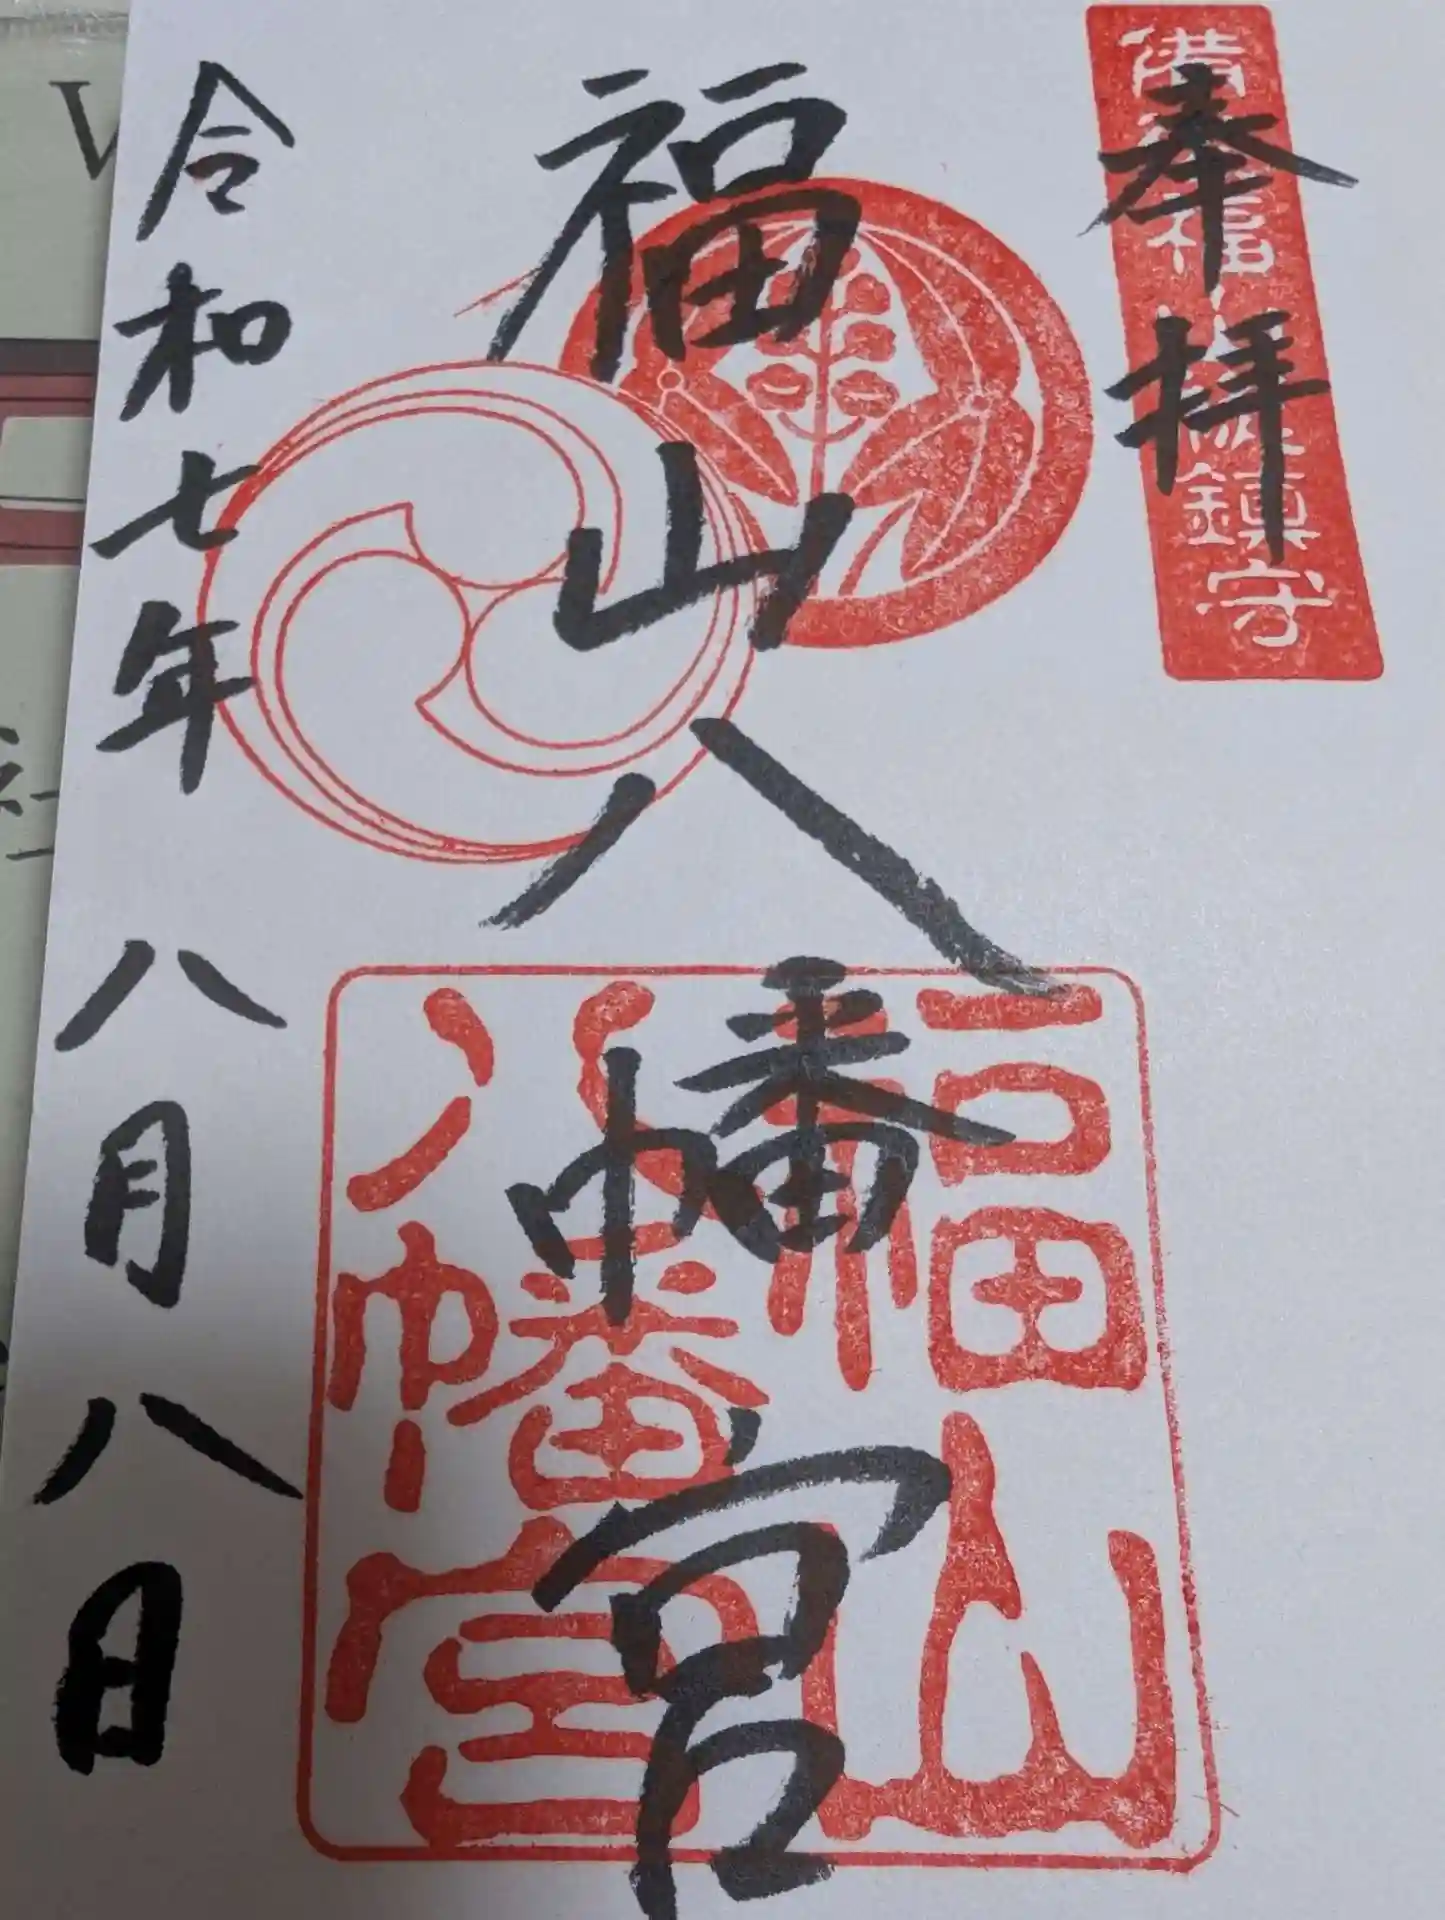 奉拝
備後福山城鎮守
福山八幡宮
福山
八幡宮
令和七年八月八日